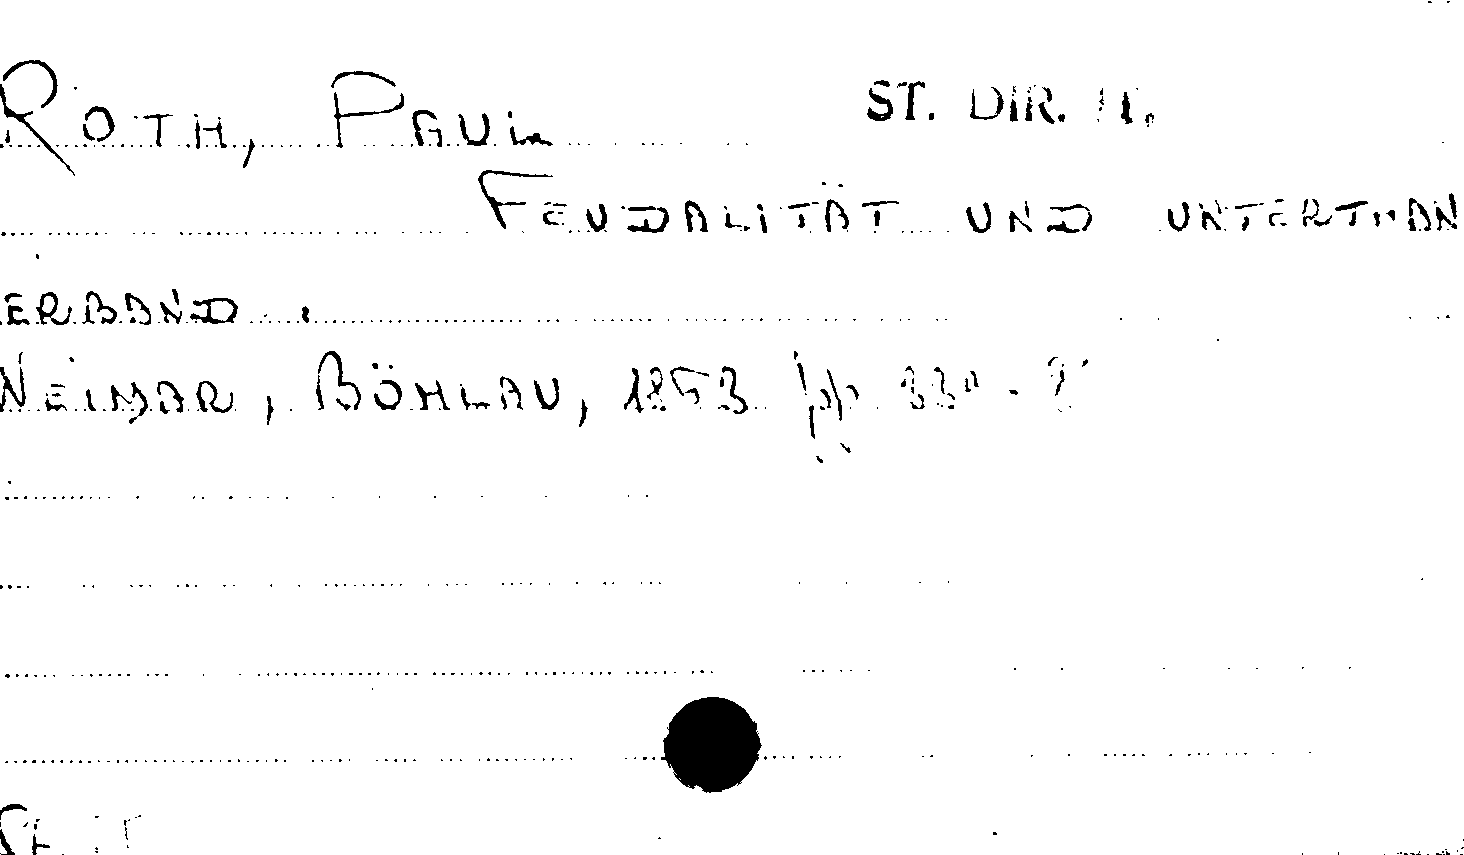 ROTH, PAUL ST. DIR. IT.
FEUDALITÄT UND UNTERTHAN
ERBAND.
WEIMAR, BÖHLAU, 1863 pp